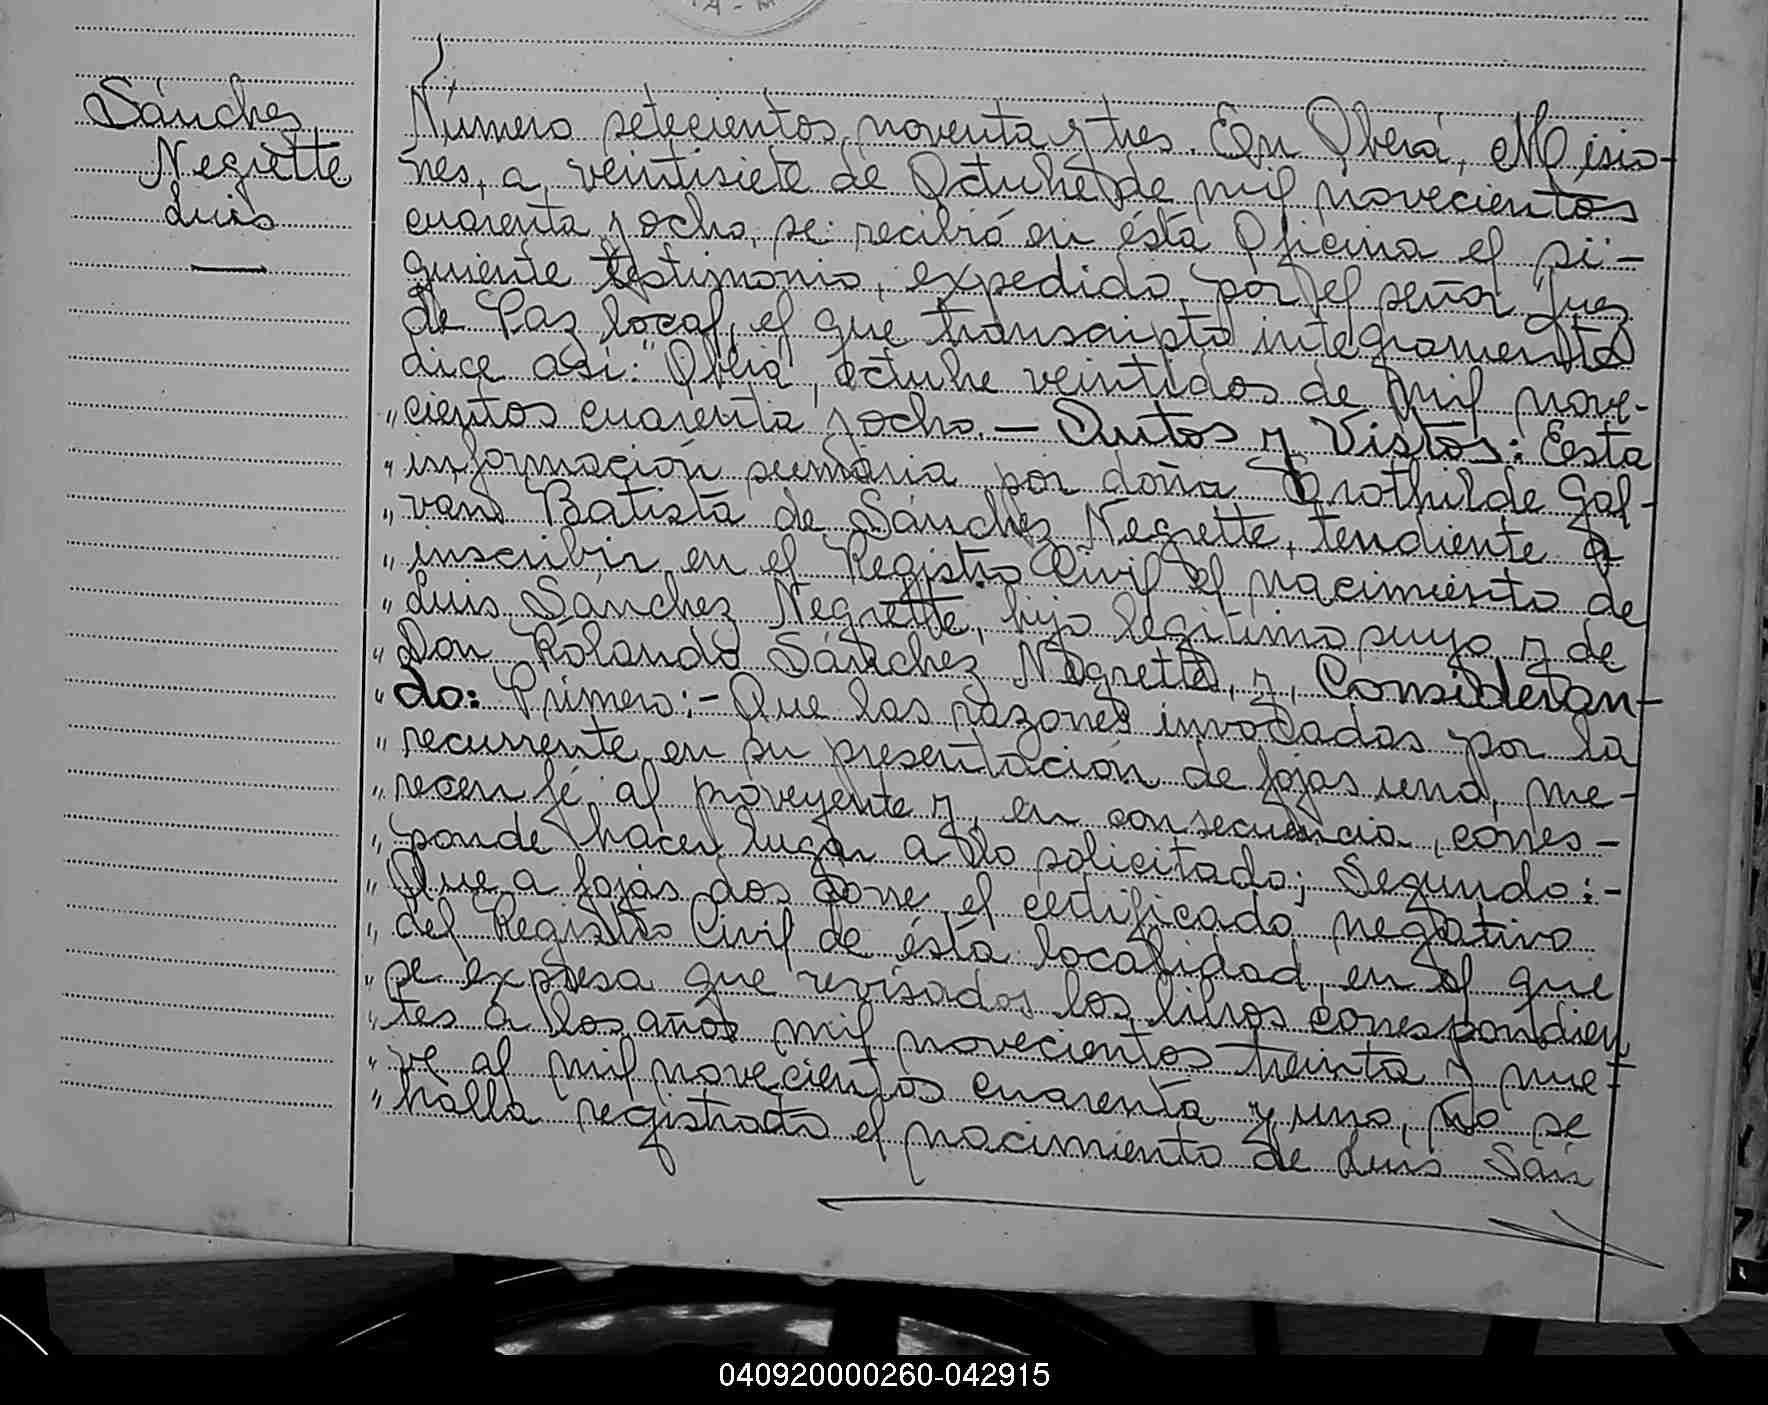 Sánchez
Negrette
Luis
Número setecientos noventa y tres. En Oberá, Misio-
nes, a veintisiete de Octubre de mil novecientos
cuarenta y ocho, se recibió en ésta Oficina el si-
guiente testimonio, expedido por el señor Juez
de Paz local, el que transcripto integramente
dice así: "Oberá, octubre veintidos de mil nove-
"cientos cuarenta y ocho.— Autos y Vistos: Esta
"información sumaria por doña Crothilde Gal-
"vani Batista de Sánchez Negrette, tendiente a
"inscribir en el Registro Civil el nacimiento de
"Luis Sánchez Negrette, hijo legítimo suyo y de
"Don Rolando Sánchez Negrette, y, Consideran-
"do: Primero:- Que las razones invocadas por la
"recurrente en su presentación de fojas una, me-
"recen fé al proveyente y, en consecuencia, corres-
"ponde hacer lugar a lo solicitado; Segundo:-
"Que a fojas dos corre el certificado negativo
"del Registro Civil de ésta localidad en el que
"se expresa que revisados los libros correspondien
"tes a los años mil novecientos treinta y nue-
"ve al mil novecientos cuarenta y uno, no se
"halla registrado el nacimiento de Luis Sán
040920000260-042915